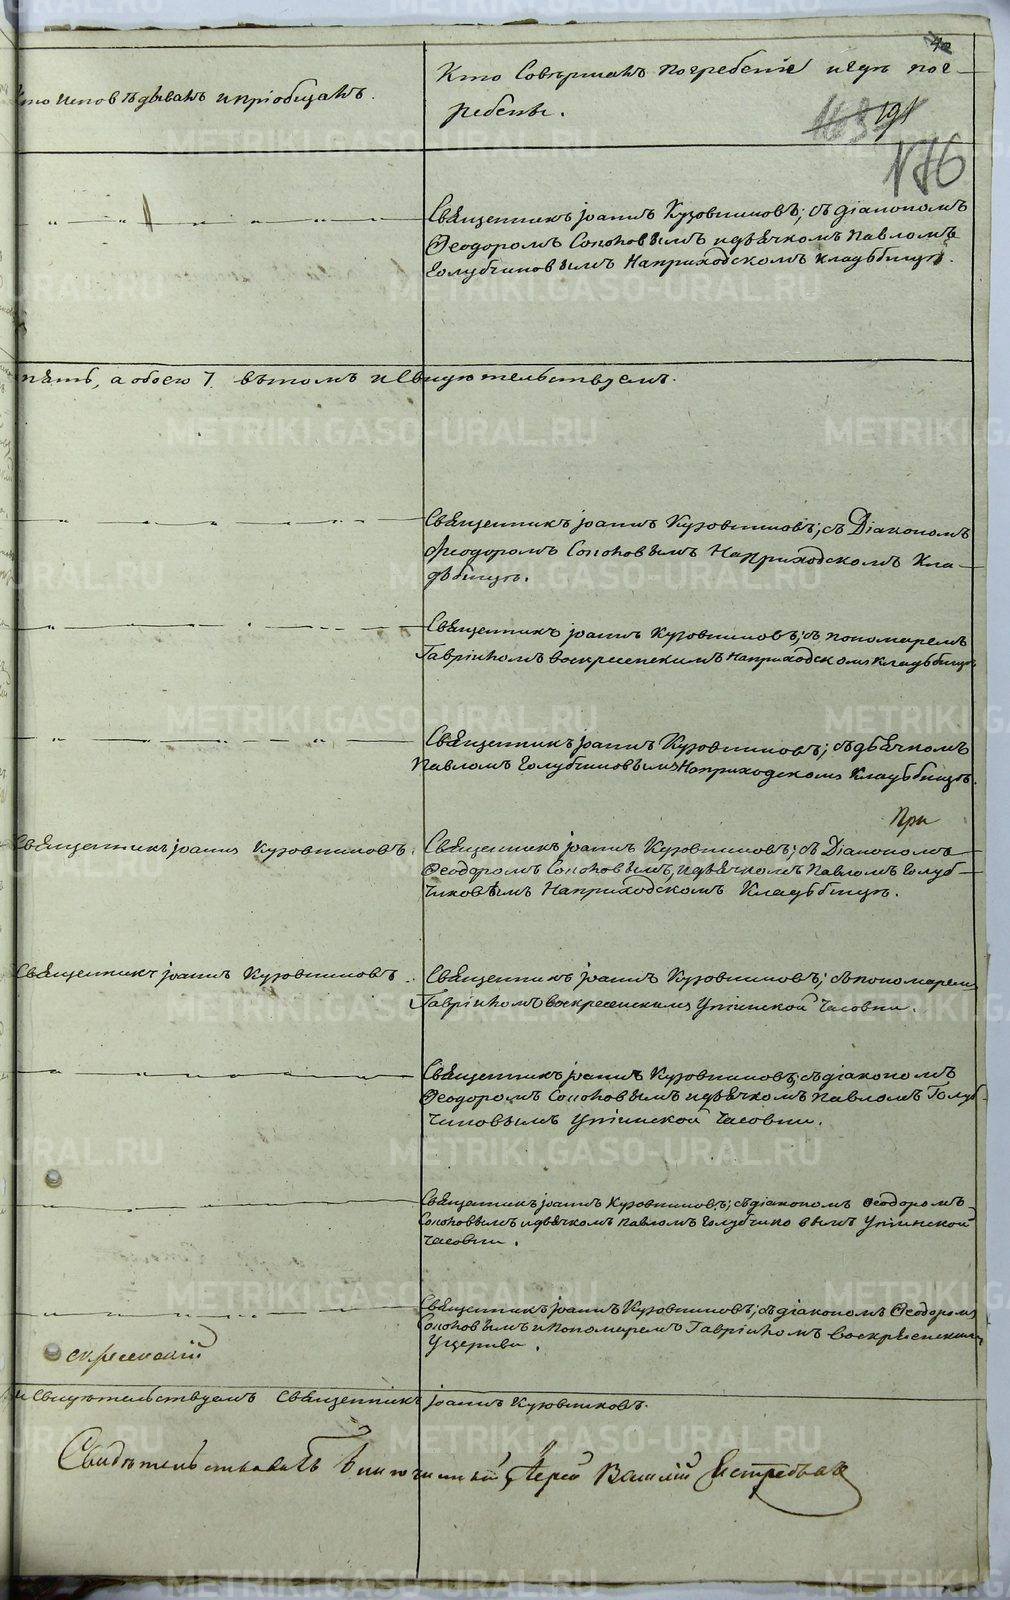 Кто исповѣдывалъ и пріобщалъ.
Кто совершалъ погребеніе и гдѣ пог-
ребенъ.
163
191
176
Священникъ Іоаннъ Кузовниковъ; съ діакономъ
Ѳеодоромъ Соколовымъ и дьячкомъ Павломъ
Голубчиковымъ на приходскомъ кладбищѣ.
пять, а обоего 7. въ томъ и свидѣтельствуемъ.
Священникъ Іоаннъ Кузовниковъ; съ Діакономъ
Ѳеодоромъ Соколовымъ на приходскомъ кла-
дбищѣ.
Священникъ Іоаннъ Кузовниковъ; съ пономаремъ
Гавріиломъ Воскресенскимъ на приходскомъ кладбищѣ
Священникъ Іоаннъ Кузовниковъ; съ дьячкомъ
Павломъ Голубчиковымъ на приходскомъ кладбищѣ.
При
Священникъ Іоаннъ Кузовниковъ.
Священникъ Іоаннъ Кузовниковъ; съ Діакономъ
Ѳеодоромъ Соколовымъ, и дьячкомъ Павломъ Голуб-
чиковымъ на приходскомъ кладбищѣ.
Священникъ Іоаннъ Кузовниковъ.
Священникъ Іоаннъ Кузовниковъ; съ пономаремъ
Гавріиломъ Воскресенскимъ Уткинской часовни.
Священникъ Іоаннъ Кузовниковъ; съ діакономъ
Ѳеодоромъ Соколовымъ и дьячкомъ Павломъ Голуб-
чиковымъ Уткинской часовни.
Священникъ Іоаннъ Кузовниковъ; съ діакономъ Ѳеодоромъ
Соколовымъ и дьячкомъ Павломъ Голубчиковымъ Уткинской
часовни.
Священникъ Іоаннъ Кузовниковъ; съ діакономъ Ѳеодоромъ
Соколовымъ и пономаремъ Гавріиломъ Воскресенскимъ
У церкви.
скресенскій
и свидѣтельствуемъ Священникъ Іоаннъ Кузовниковъ.
Свидѣтельствовалъ Благочинный Іерей Василій Ястребовъ
METRIKI.GASO-URAL.RU